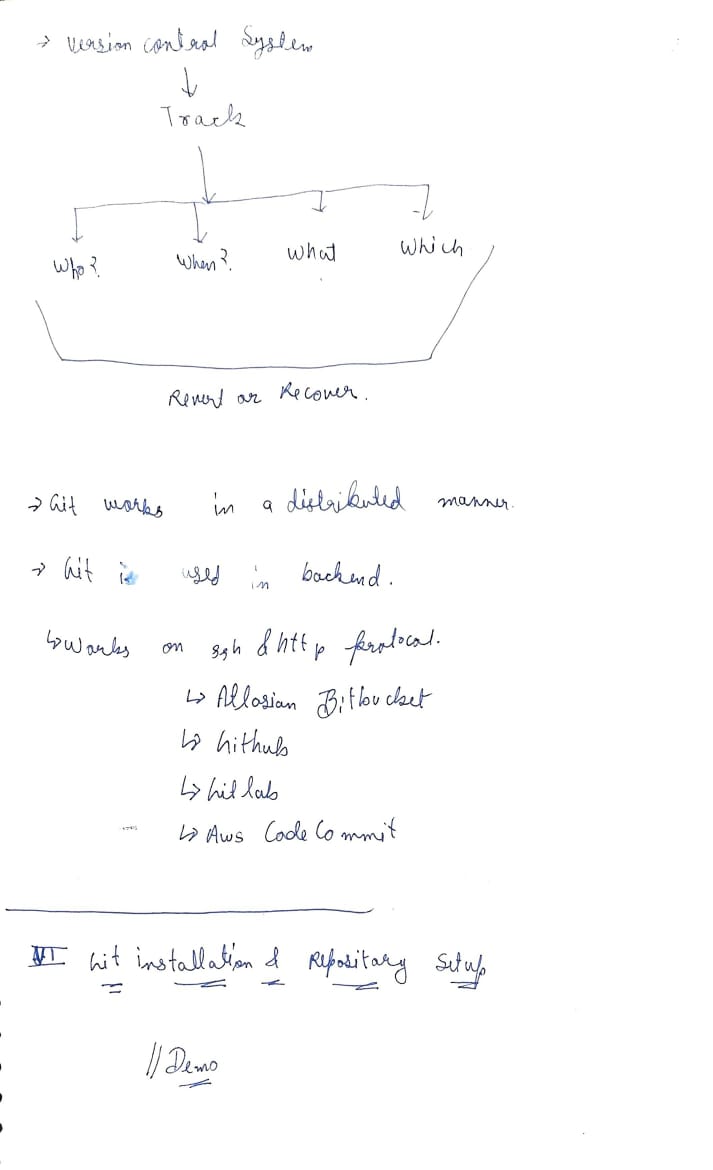 → Version control System
↓
Track
Who? When? What Which
Revert or Recover.
→ Git works in a distributed manner.
→ Git is used in backend.
↳ Works on ssh & http protocal.
↳ Atlosian Bitbucket
↳ Github
↳ Gitlab
↳ Aws Code Commit
VI Git installation & Repositary Setup
// Demo